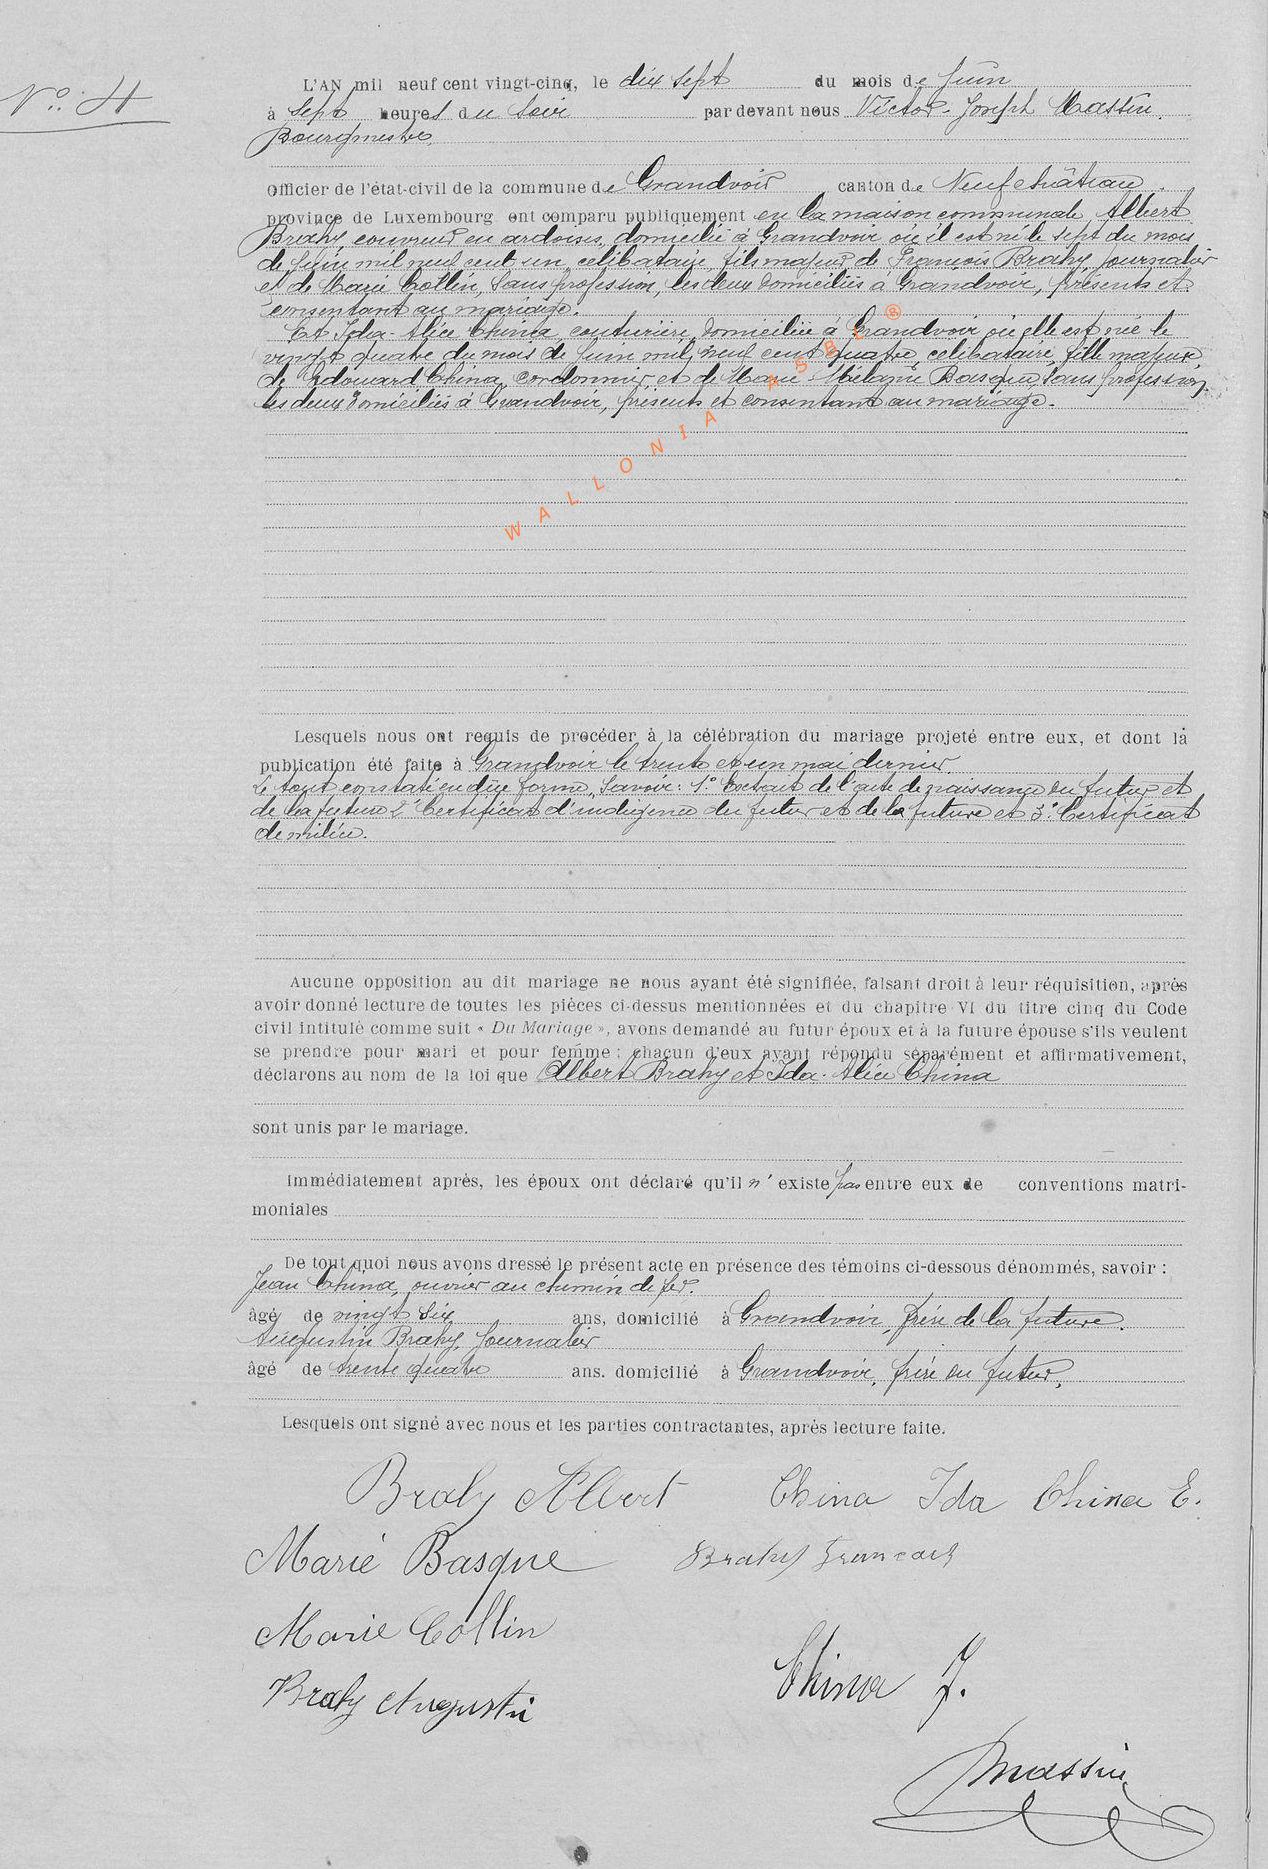 N° 4
L'AN mil neuf cent vingt-cinq, le dix sept du mois de Juin
à sept heures du soir par devant nous Victor-Joseph Massin,
Bourgmestre,
Officier de l'état-civil de la commune de Grandvoir canton de Neufchâteau
province de Luxembourg ont comparu publiquement en la maison communale, Albert
Brahy, couvreur en ardoises, domicilié à Grandvoir où il est né le sept du mois
de Juin mil neuf cent un, célibataire, fils majeur de François Brahy, journalier
et de Marie Collin, sans profession, les deux domiciliés à Grandvoir, présents et
consentant au mariage.
Et Ida-Alice China, couturière, domiciliée à Grandvoir où elle est née le
vingt quatre du mois de Juin mil neuf cent quatre, célibataire, fille majeure
de Edouard China, cordonnier, et de Marie-Mélanie Basque, sans profession,
les deux domiciliés à Grandvoir, présents et consentant au mariage.
WALLONIA ASBL ®
Lesquels nous ont requis de procéder à la célébration du mariage projeté entre eux, et dont la
publication été faite à Grandvoir le trente et un mai dernier.
Le tout constaté en due forme, savoir: 1° Extrait de l'acte de naissance du futur et
de la future 2° Certificat d'indigence du futur et de la future et 3° Certificat
de milice.
Aucune opposition au dit mariage ne nous ayant été signifiée, faisant droit à leur réquisition, après
avoir donné lecture de toutes les pièces ci-dessus mentionnées et du chapitre VI du titre cinq du Code
civil intitulé comme suit « Du Mariage », avons demandé au futur époux et à la future épouse s'ils veulent
se prendre pour mari et pour femme ; chacun d'eux ayant répondu séparément et affirmativement,
déclarons au nom de la loi que Albert Brahy et Ida-Alice China
sont unis par le mariage.
Immédiatement après, les époux ont déclaré qu'il n'existe pas entre eux de conventions matri-
moniales
De tout quoi nous avons dressé le présent acte en présence des témoins ci-dessous dénommés, savoir :
Jean China, ouvrier au chemin de fer.
âgé de vingt six ans, domicilié à Grandvoir, frère de la future.
Augustin Brahy, journalier
âgé de trente quatre ans. domicilié à Grandvoir, frère du futur,
Lesquels ont signé avec nous et les parties contractantes, après lecture faite.
Brahy Albert China Ida China E.
Marie Basque Brahy Francois
Marie Collin
China J.
Brahy Augustin
Massin